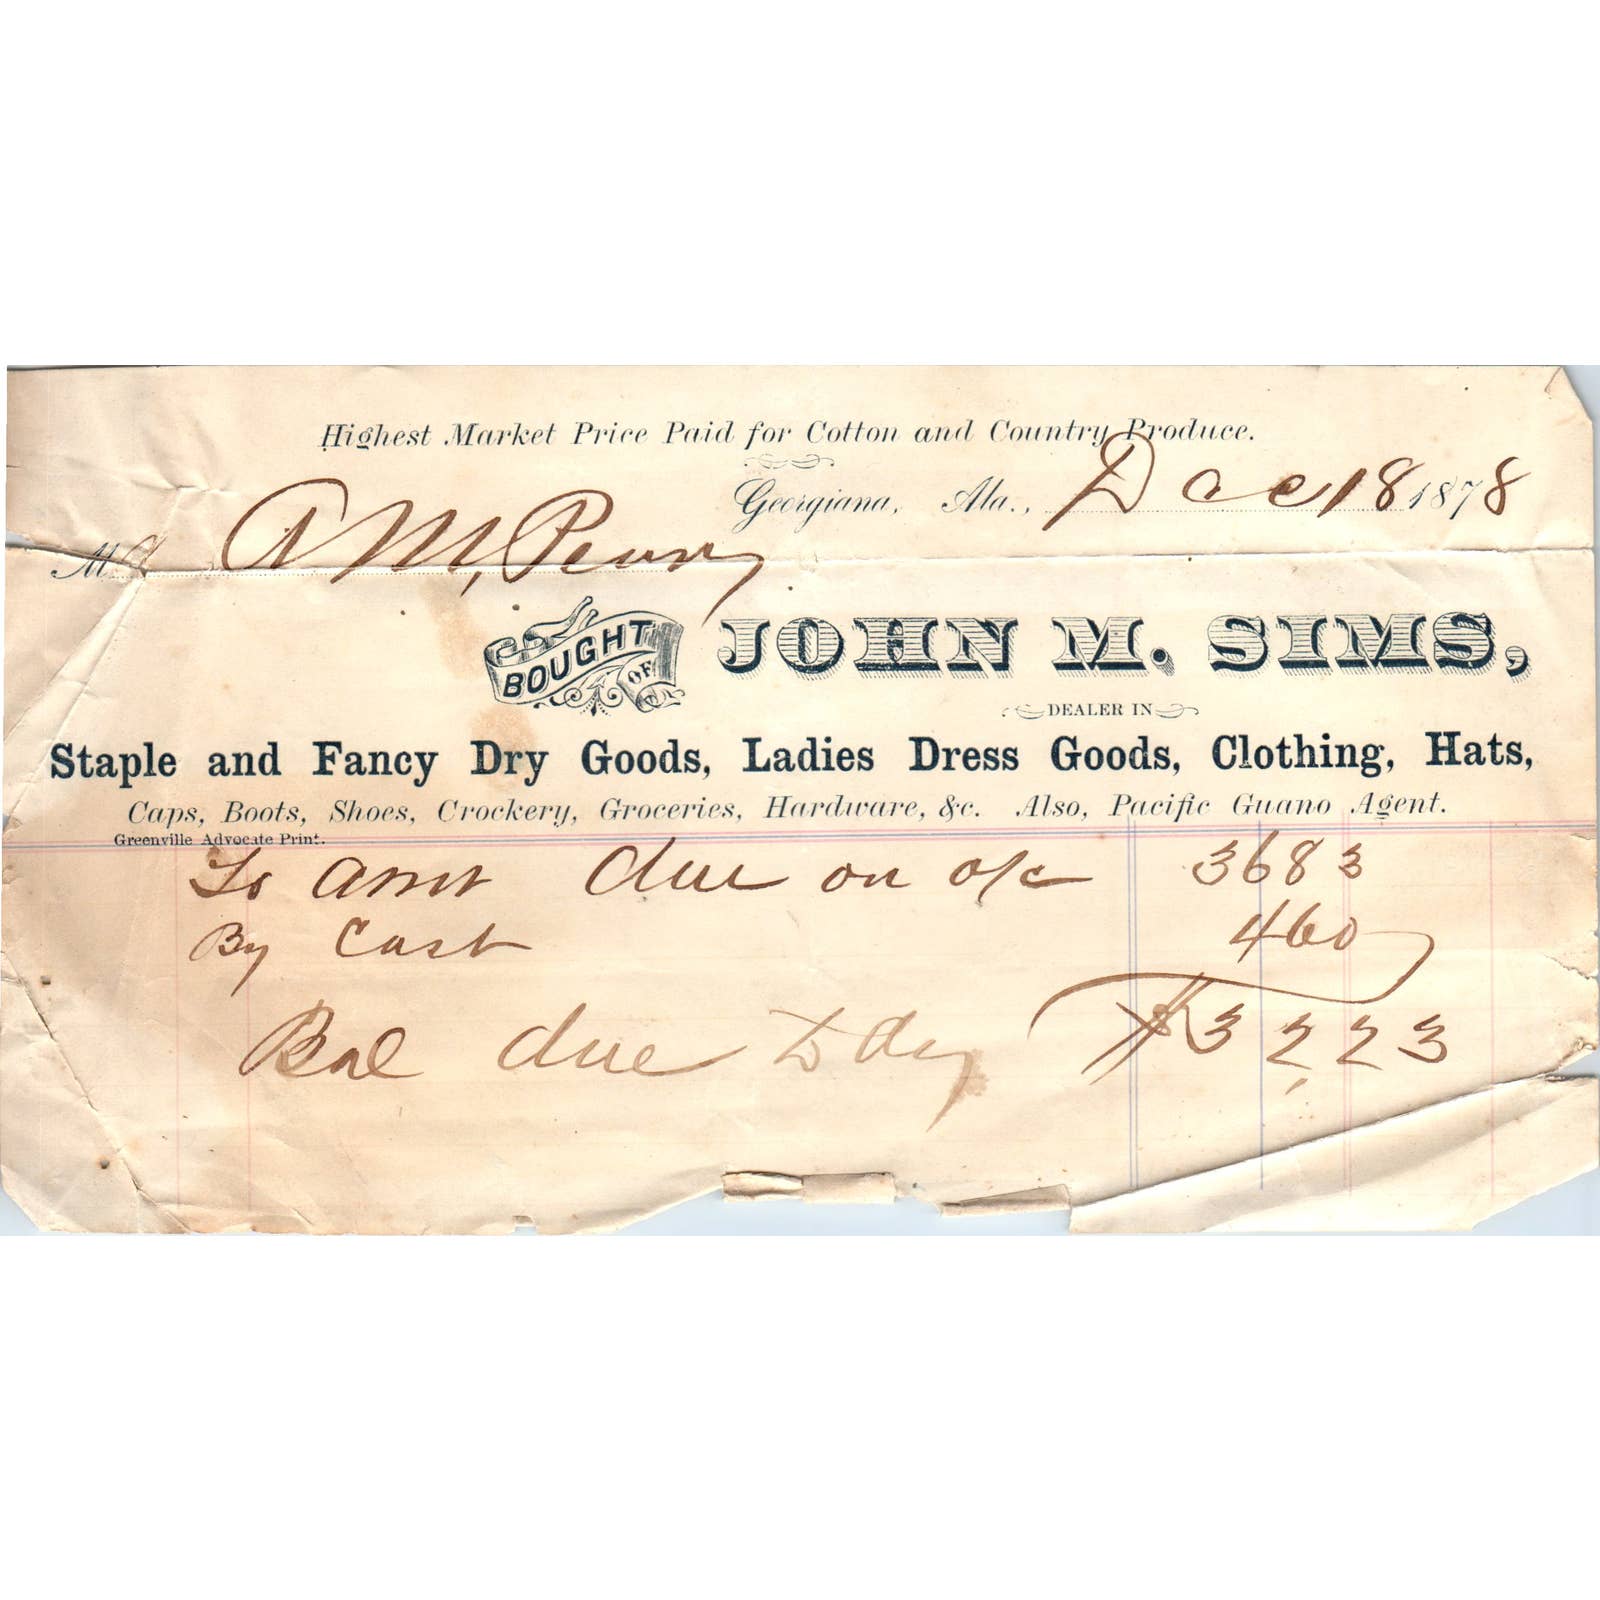 Highest Market Price Paid for Cotton and Country Produce.
Georgiana, Ala., Dec 18 1878
Mr A M, Perry
BOUGHT OF JOHN M. SIMS,
DEALER IN
Staple and Fancy Dry Goods, Ladies Dress Goods, Clothing, Hats,
Caps, Boots, Shoes, Crockery, Groceries, Hardware, &c. Also, Pacific Guano Agent.
Greenville Advocate Print.
To Amt due on a/c 3683
By Cash 460
Bal due To day $3223